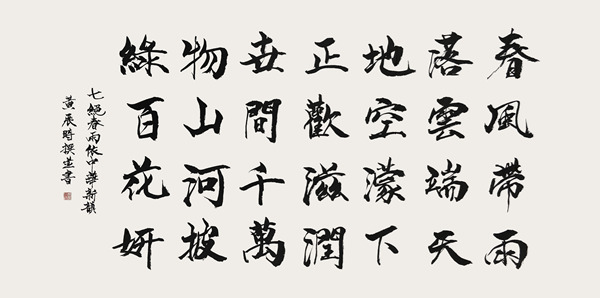 春風帶雨
落雲端天
地空濛下
正歡滋潤
世間千萬
物山河披
綠百花妍
七絕春雨依中華新韻
黃時撰並書